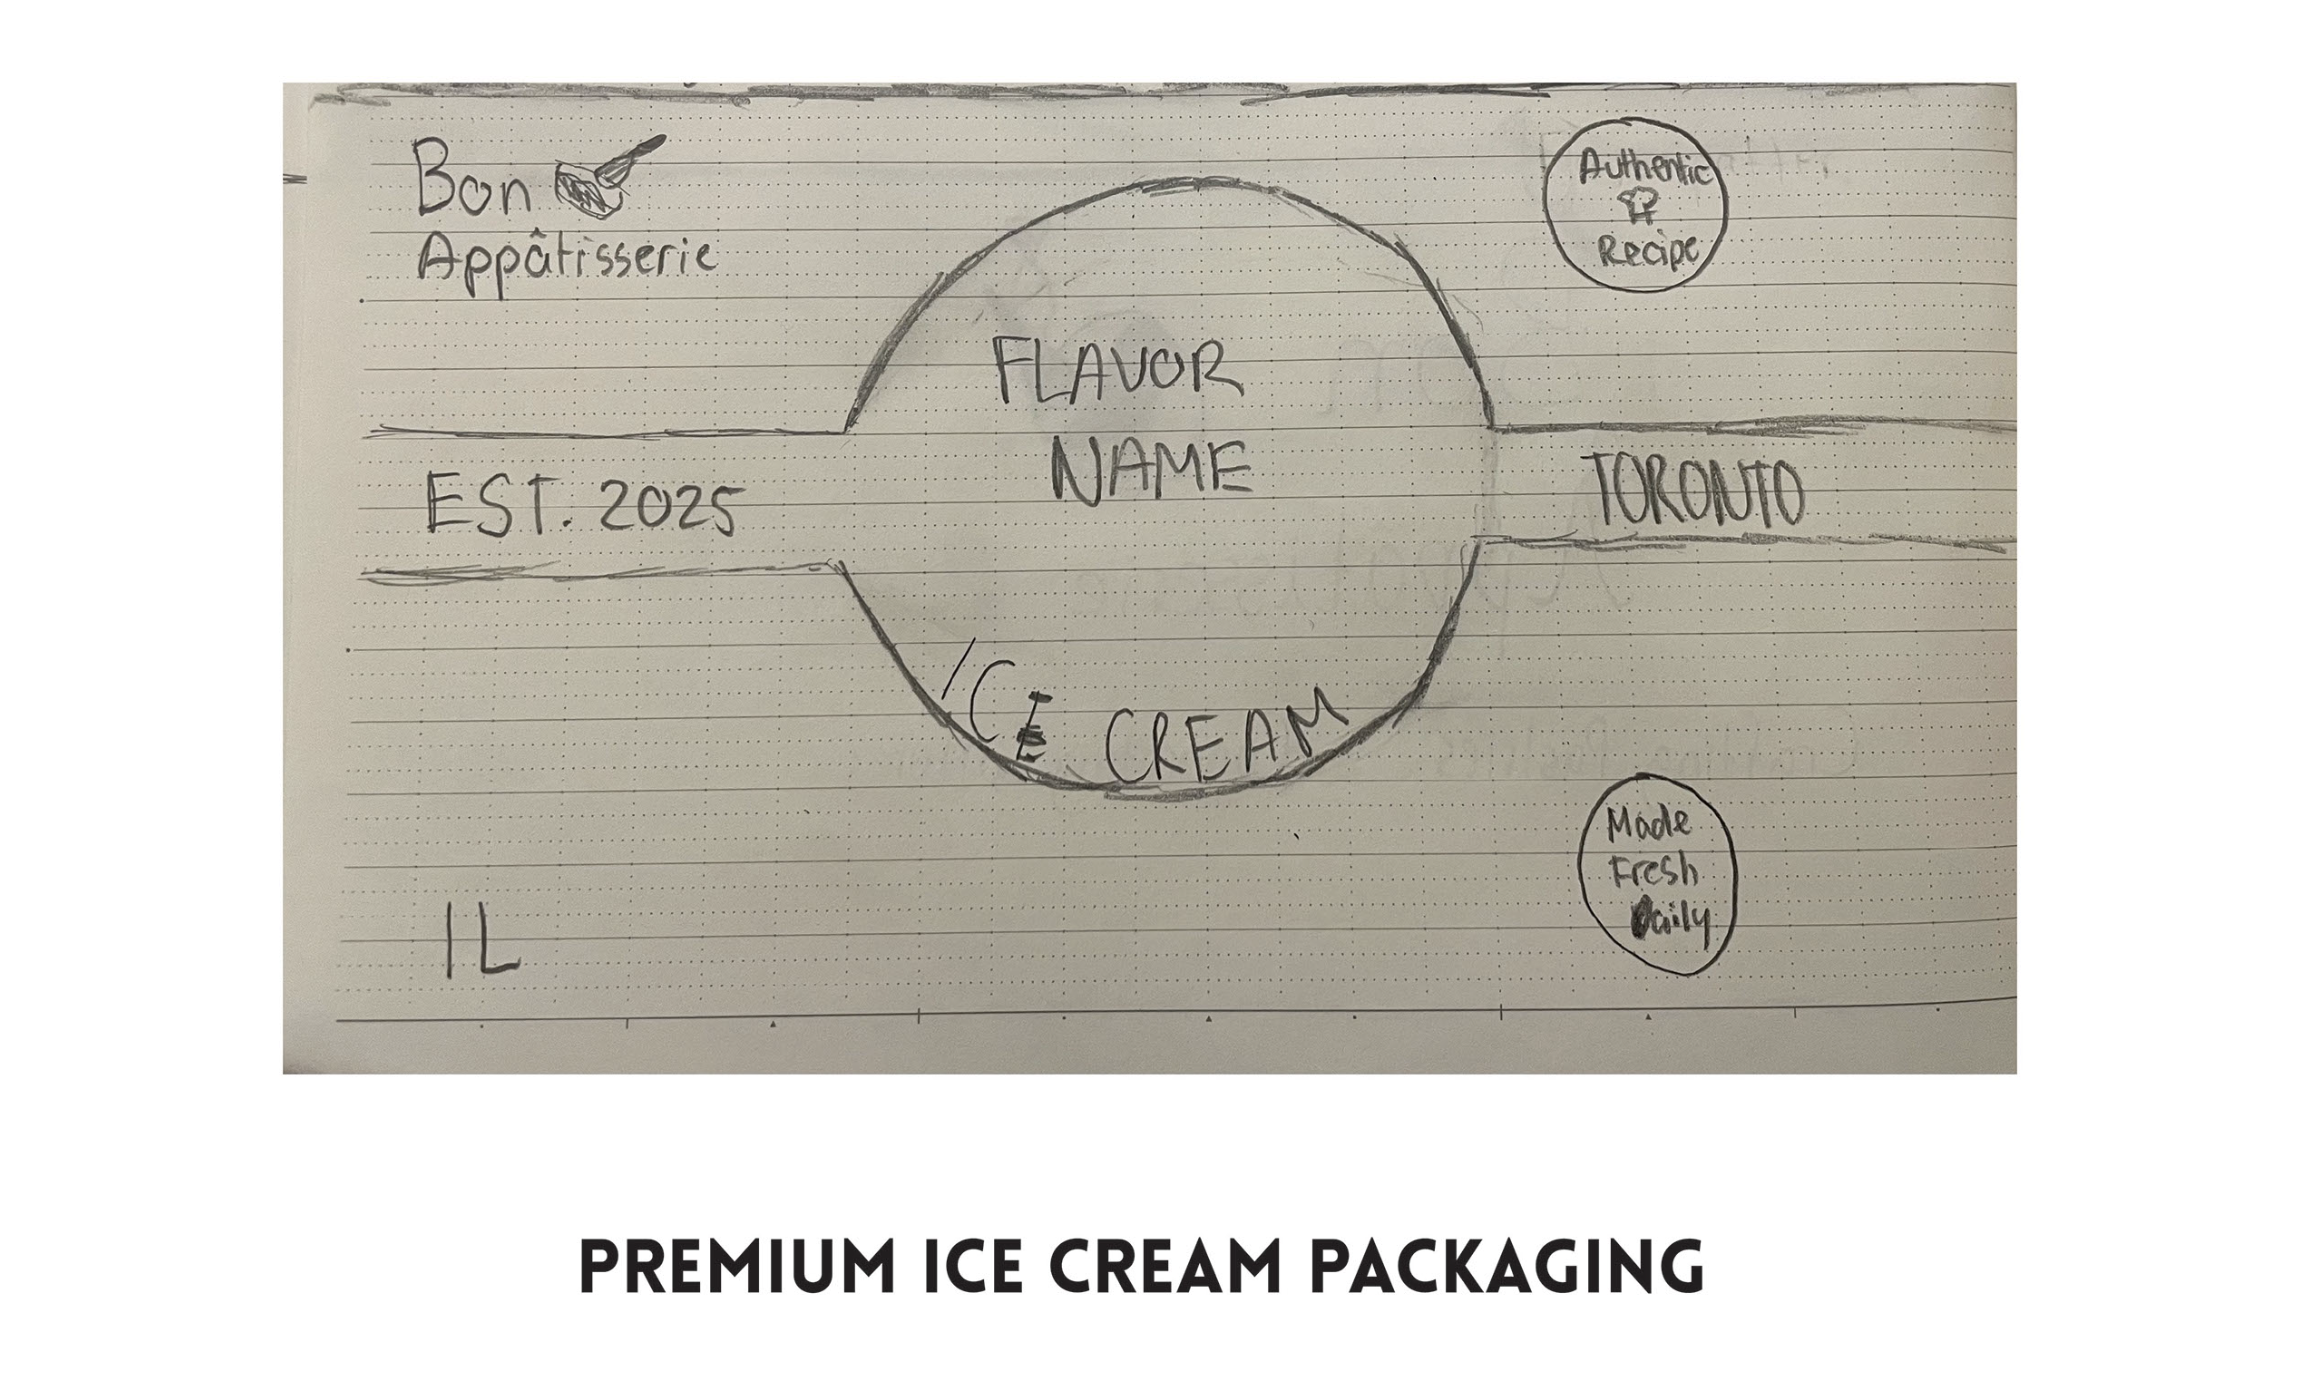 Bon
Appâtisserie
Authentic
Recipe
FLAVOR
NAME
EST. 2025
TORONTO
ICE CREAM
Made
Fresh
Daily
1L
PREMIUM ICE CREAM PACKAGING